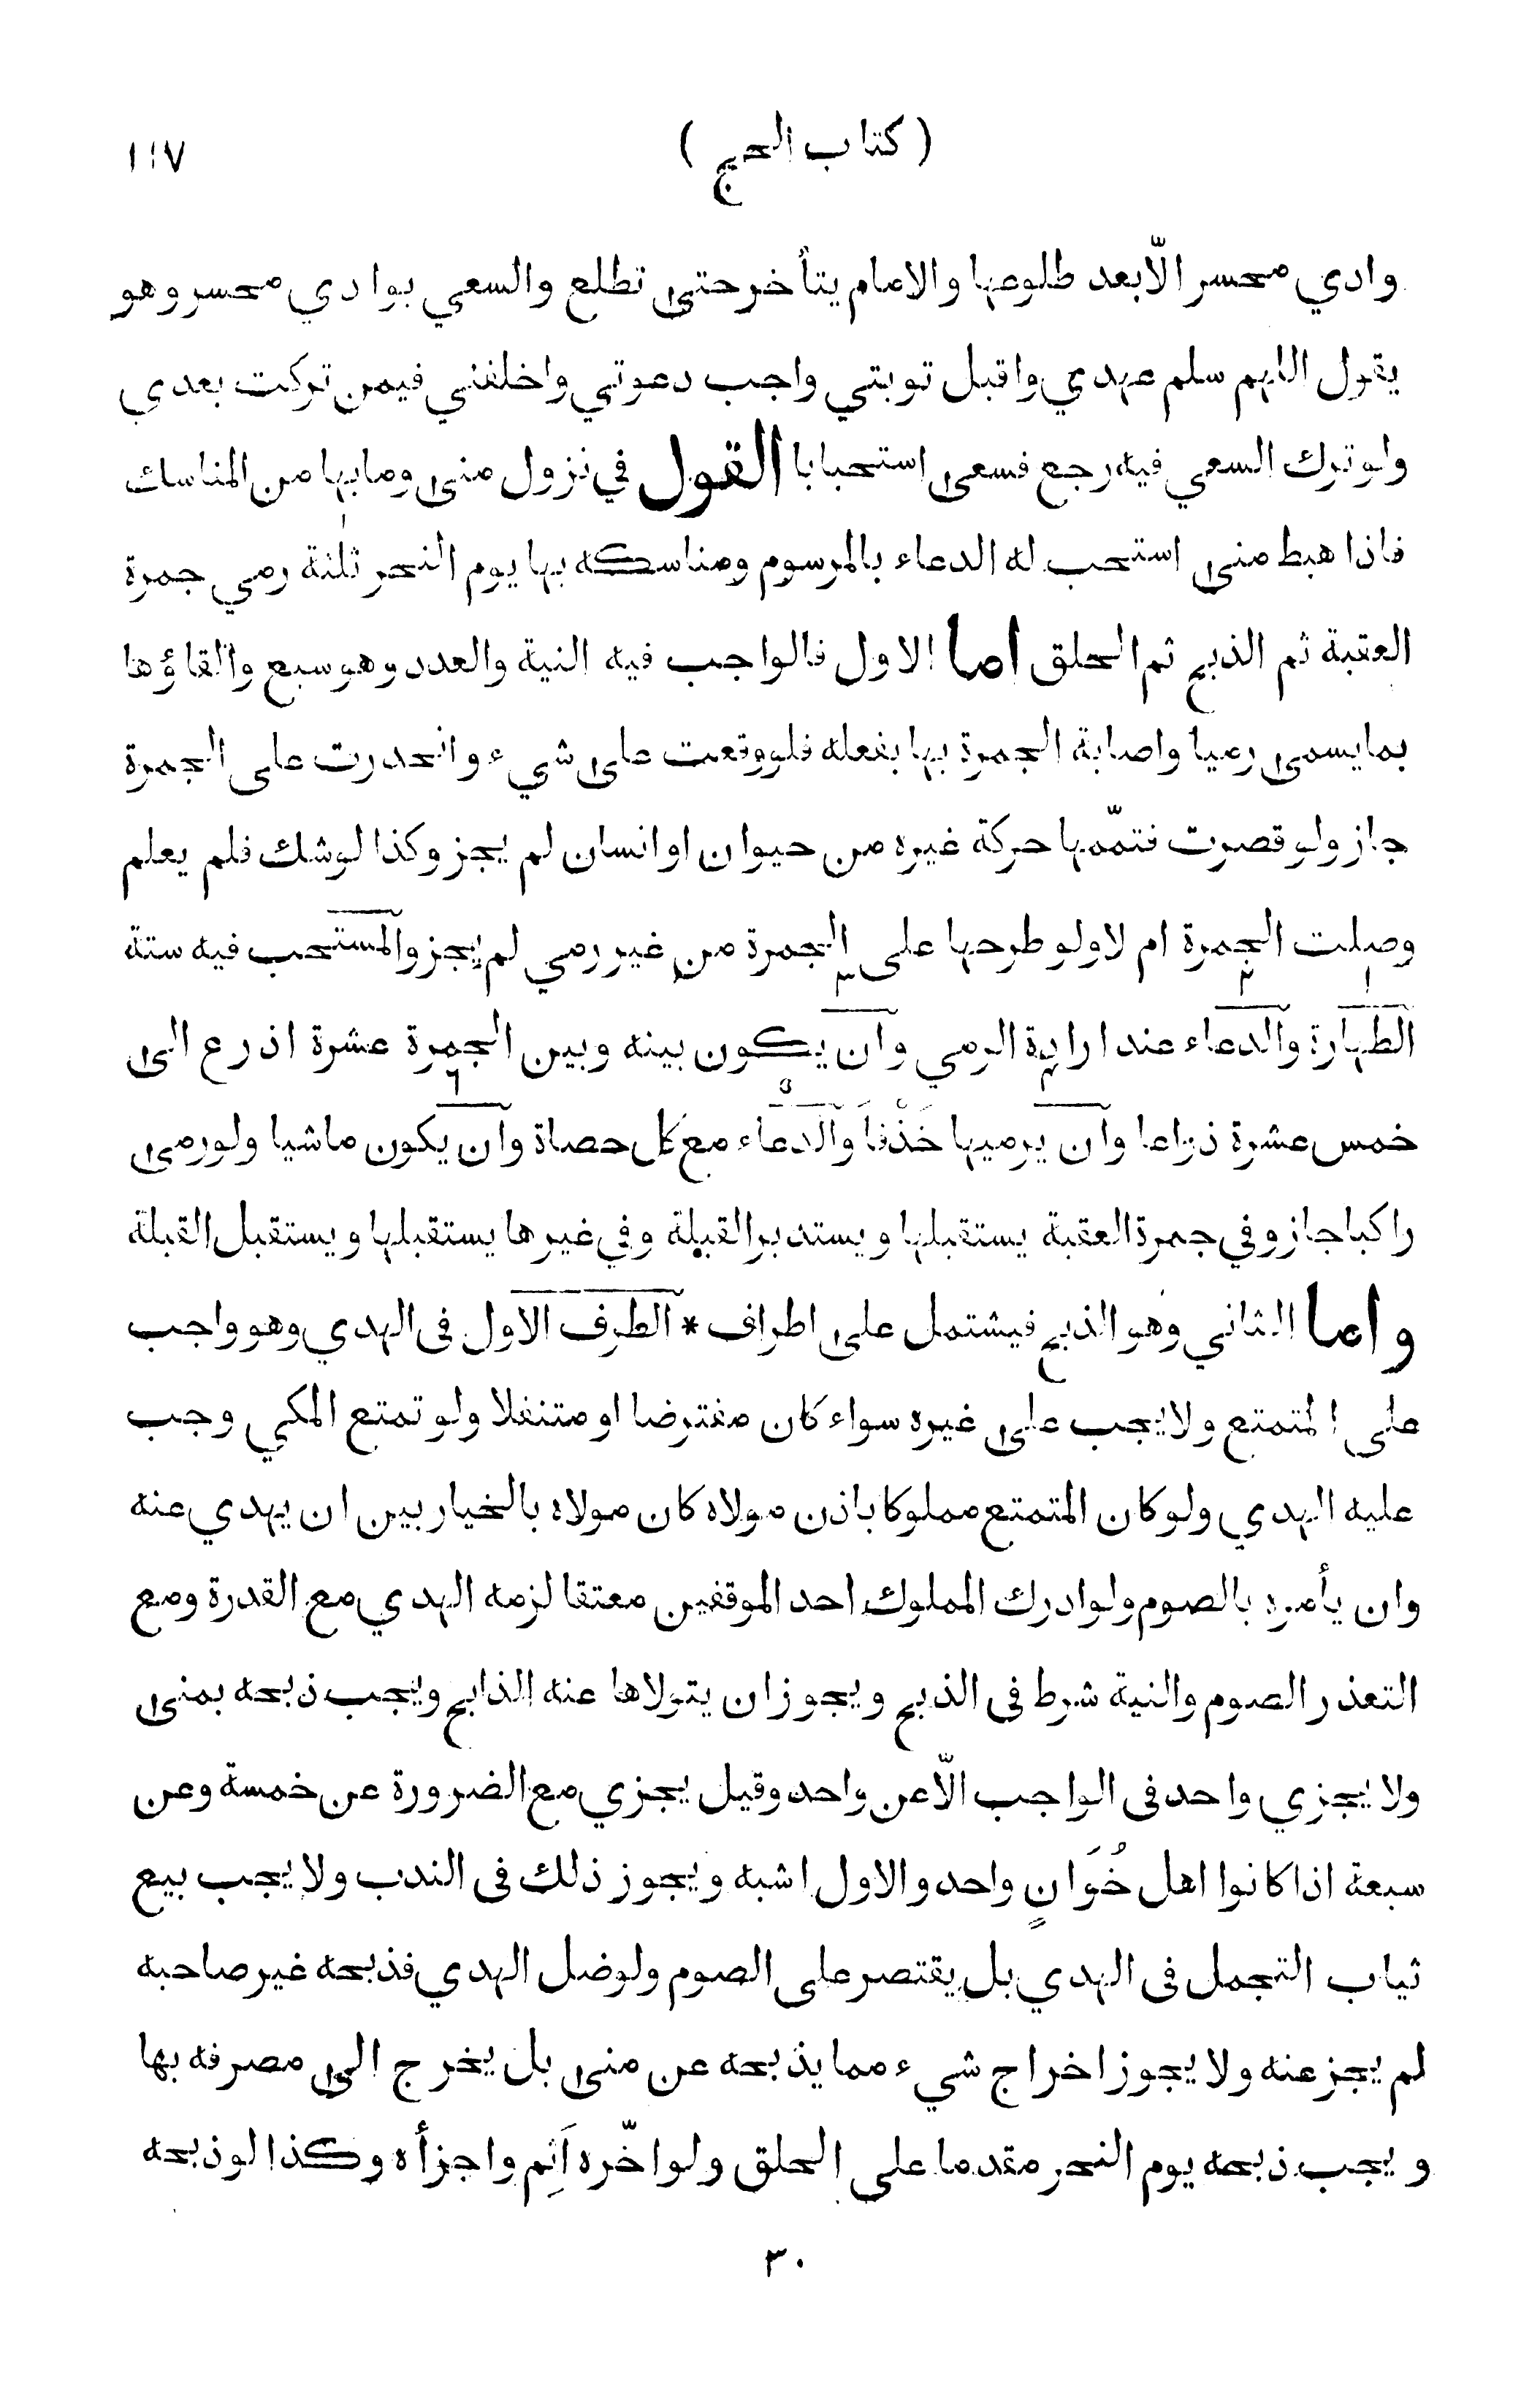 ( كتاب الحج ) ١١٧
وادي محسر الّا بعد طلوعها والامام يتأخر حتى تطلع والسعي بوادي محسر وهو
يقول اللهم سلم عهدي واقبل توبتي واجب دعوتي واخلفني فيمن تركت بعدي
ولو ترك السعي فيه رجع فسعى استحبابا القول في نزول منى وما بها من المناسك
فاذا هبط منى استحب له الدعاء بالمرسوم ومناسكه بها يوم النحر ثلٰثة رمي جمرة
العقبة ثم الذبح ثم الحلق اما الاول فالواجب فيه النية والعدد وهو سبع والقاؤها
بما يسمى رميا واصابة الجمرة بها بفعله فلو وقعت على شيء وانحدرت على الجمرة
جاز ولو قصرت فتمّمها حركة غيره من حيوان او انسان لم يجز وكذا لو شك فلم يعلم
وصلت الجمرة ام لا ولو طرحها على الجمرة من غير رمي لم يجز والمستحب فيه ستة
١ ٢ ٣
الطهارة والدعاء عند ارادة الرمي وان يكون بينه وبين الجمرة عشرة اذرع الى
٤ ٥ ٦
خمس عشرة ذراعا وان يرميها خَذْفاً والدعاء مع كل حصاة وان يكون ماشيا ولو رمى
راكبا جاز وفي جمرة العقبة يستقبلها ويستدبر القبلة وفي غيرها يستقبلها ويستقبل القبلة
واما الثاني وهو الذبح فيشتمل على اطراف * الطرف الاول فى الهدي وهو واجب
على المتمتع ولا يجب على غيره سواء كان مفترضا او متنفلا ولو تمتع المكي وجب
عليه الهدي ولو كان المتمتع مملوكا باذن مولاه كان مولاه بالخيار بين ان يهدي عنه
وان يأمره بالصوم ولو ادرك المملوك احد الموقفين معتقا لزمه الهدي مع القدرة ومع
التعذر الصوم والنية شرط فى الذبح ويجوز ان يتولاها عنه الذابح ويجب ذبحه بمنى
ولا يجزي واحد فى الواجب الّا عن واحد وقيل يجزي مع الضرورة عن خمسة وعن
سبعة اذا كانوا اهل خُوَانٍ واحد والاول اشبه ويجوز ذلك فى الندب ولا يجب بيع
ثياب التجمل فى الهدي بل يقتصر على الصوم ولو ضل الهدي فذبحه غير صاحبه
لم يجز عنه ولا يجوز اخراج شيء مما يذبحه عن منى بل يخرج الى مصرفه بها
ويجب ذبحه يوم النحر مقدما على الحلق ولو اخّره اَثِم واجزأه وكذا لو ذبحه
٣٠